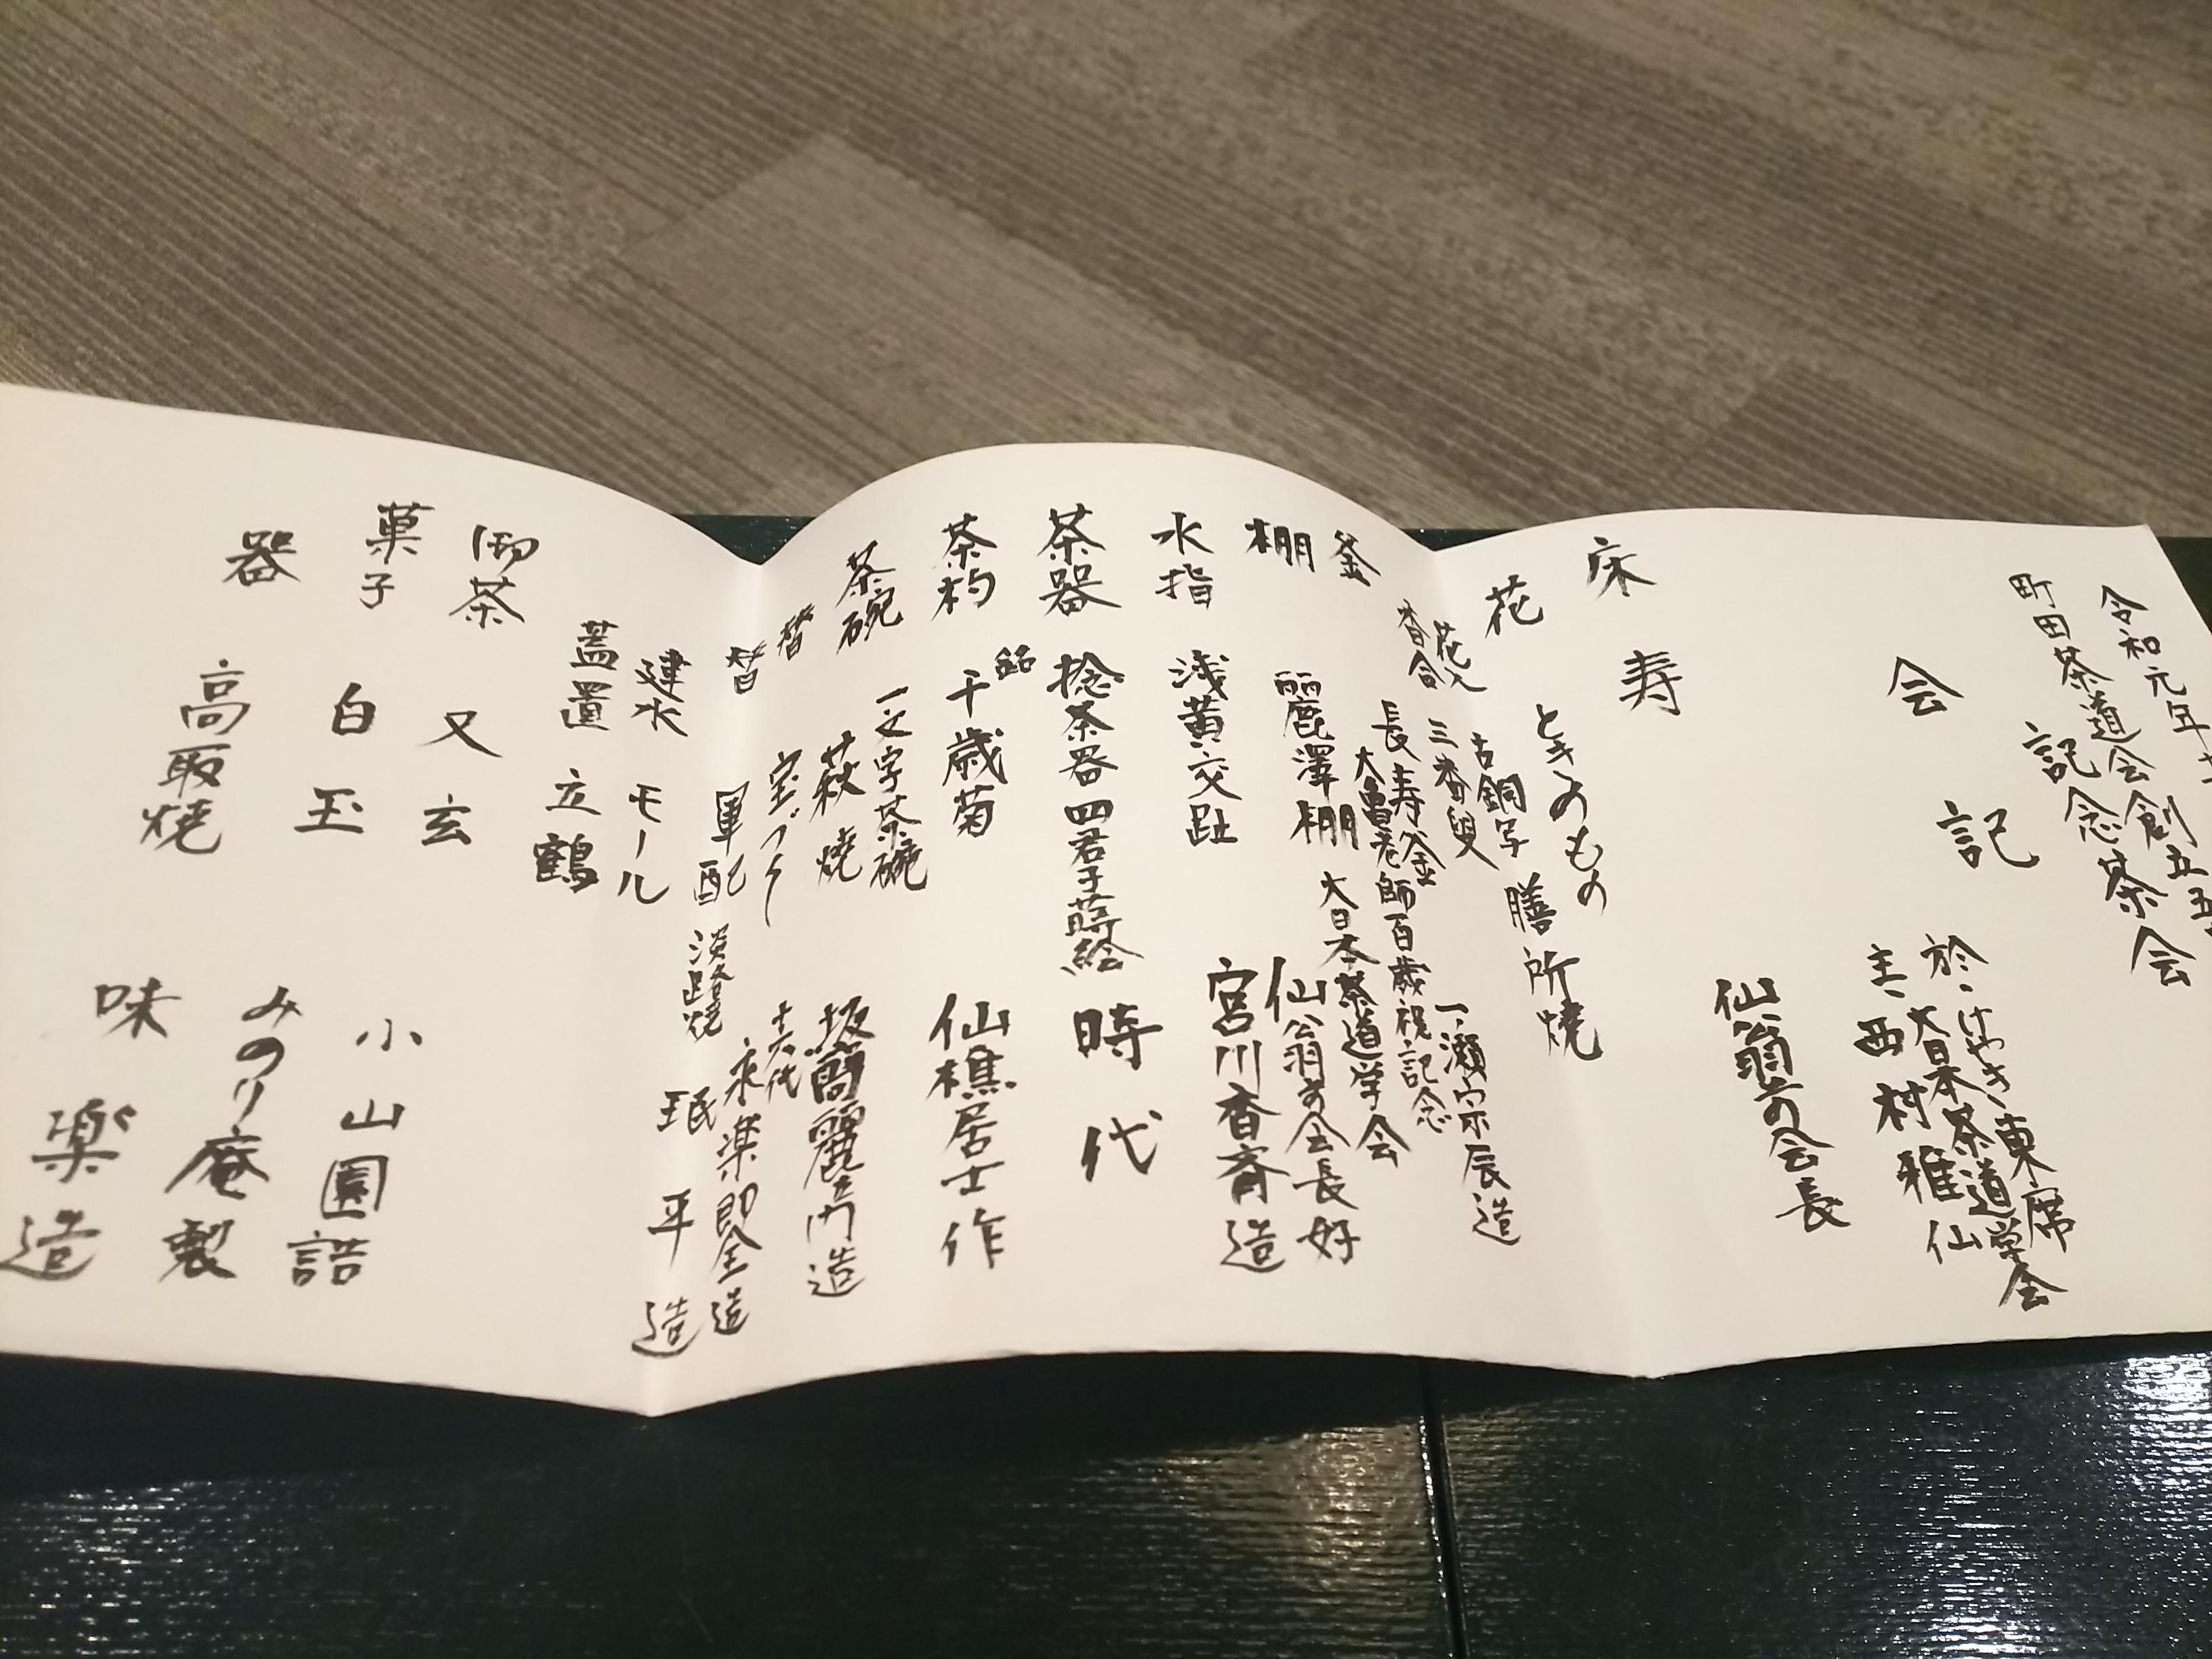 令和元年十
町田茶道会創立五
記念茶会
会記
於、けやき、東席
大日本茶道学会
主、西村雅仙
床 寿 仙翁寿の会長
花 ときのもの
花入 古銅写 膳所焼
香合 三番叟 一ノ瀬宗辰造
釜 長寿釜
大亀老師百歳祝記念
大日本茶道学会
棚 麗澤棚 仙翁寿の会長好
水指 浅黄交趾 宮川香斎造
茶器 捻茶器四君子蒔絵 時代
茶杓 銘 千歳菊 仙樵居士作
茶碗 一文字茶碗
萩焼 坂高麗左衛門造
替 宝づくし 十六代永楽即全造
替 軍配 淡路焼 珉平造
建水 モール
蓋置 立鶴
御茶 又玄 小山園詰
菓子 白玉 みのり庵製
器 高取焼 味楽造